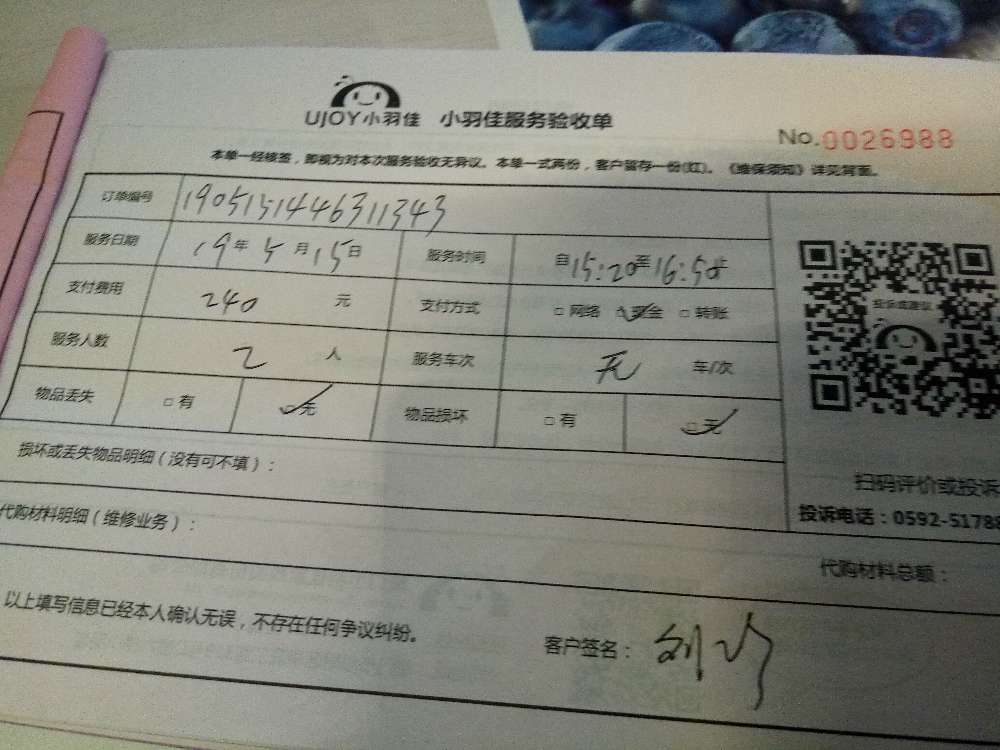 UJOY小羽佳 小羽佳服务验收单
No.0026988
本单一经核签，即视为对本次服务验收无异议。本单一式两份，客户留存一份(红)。《维保须知》详见背面。
订单编号 1905151446311343
服务日期 19年5月15日 服务时间 自15:20至16:50止
支付费用 240 元 支付方式 □网络 □现金 □转账
服务人数 2 人 服务车次 无 车/次
物品丢失 □有 □无 物品损坏 □有 □无
损坏或丢失物品明细（没有可不填）：
投诉或建议
扫码评价或投诉
投诉电话：0592-51788
代购材料明细（维修业务）：
代购材料总额：
以上填写信息已经本人确认无误，不存在任何争议纠纷。
客户签名：刘